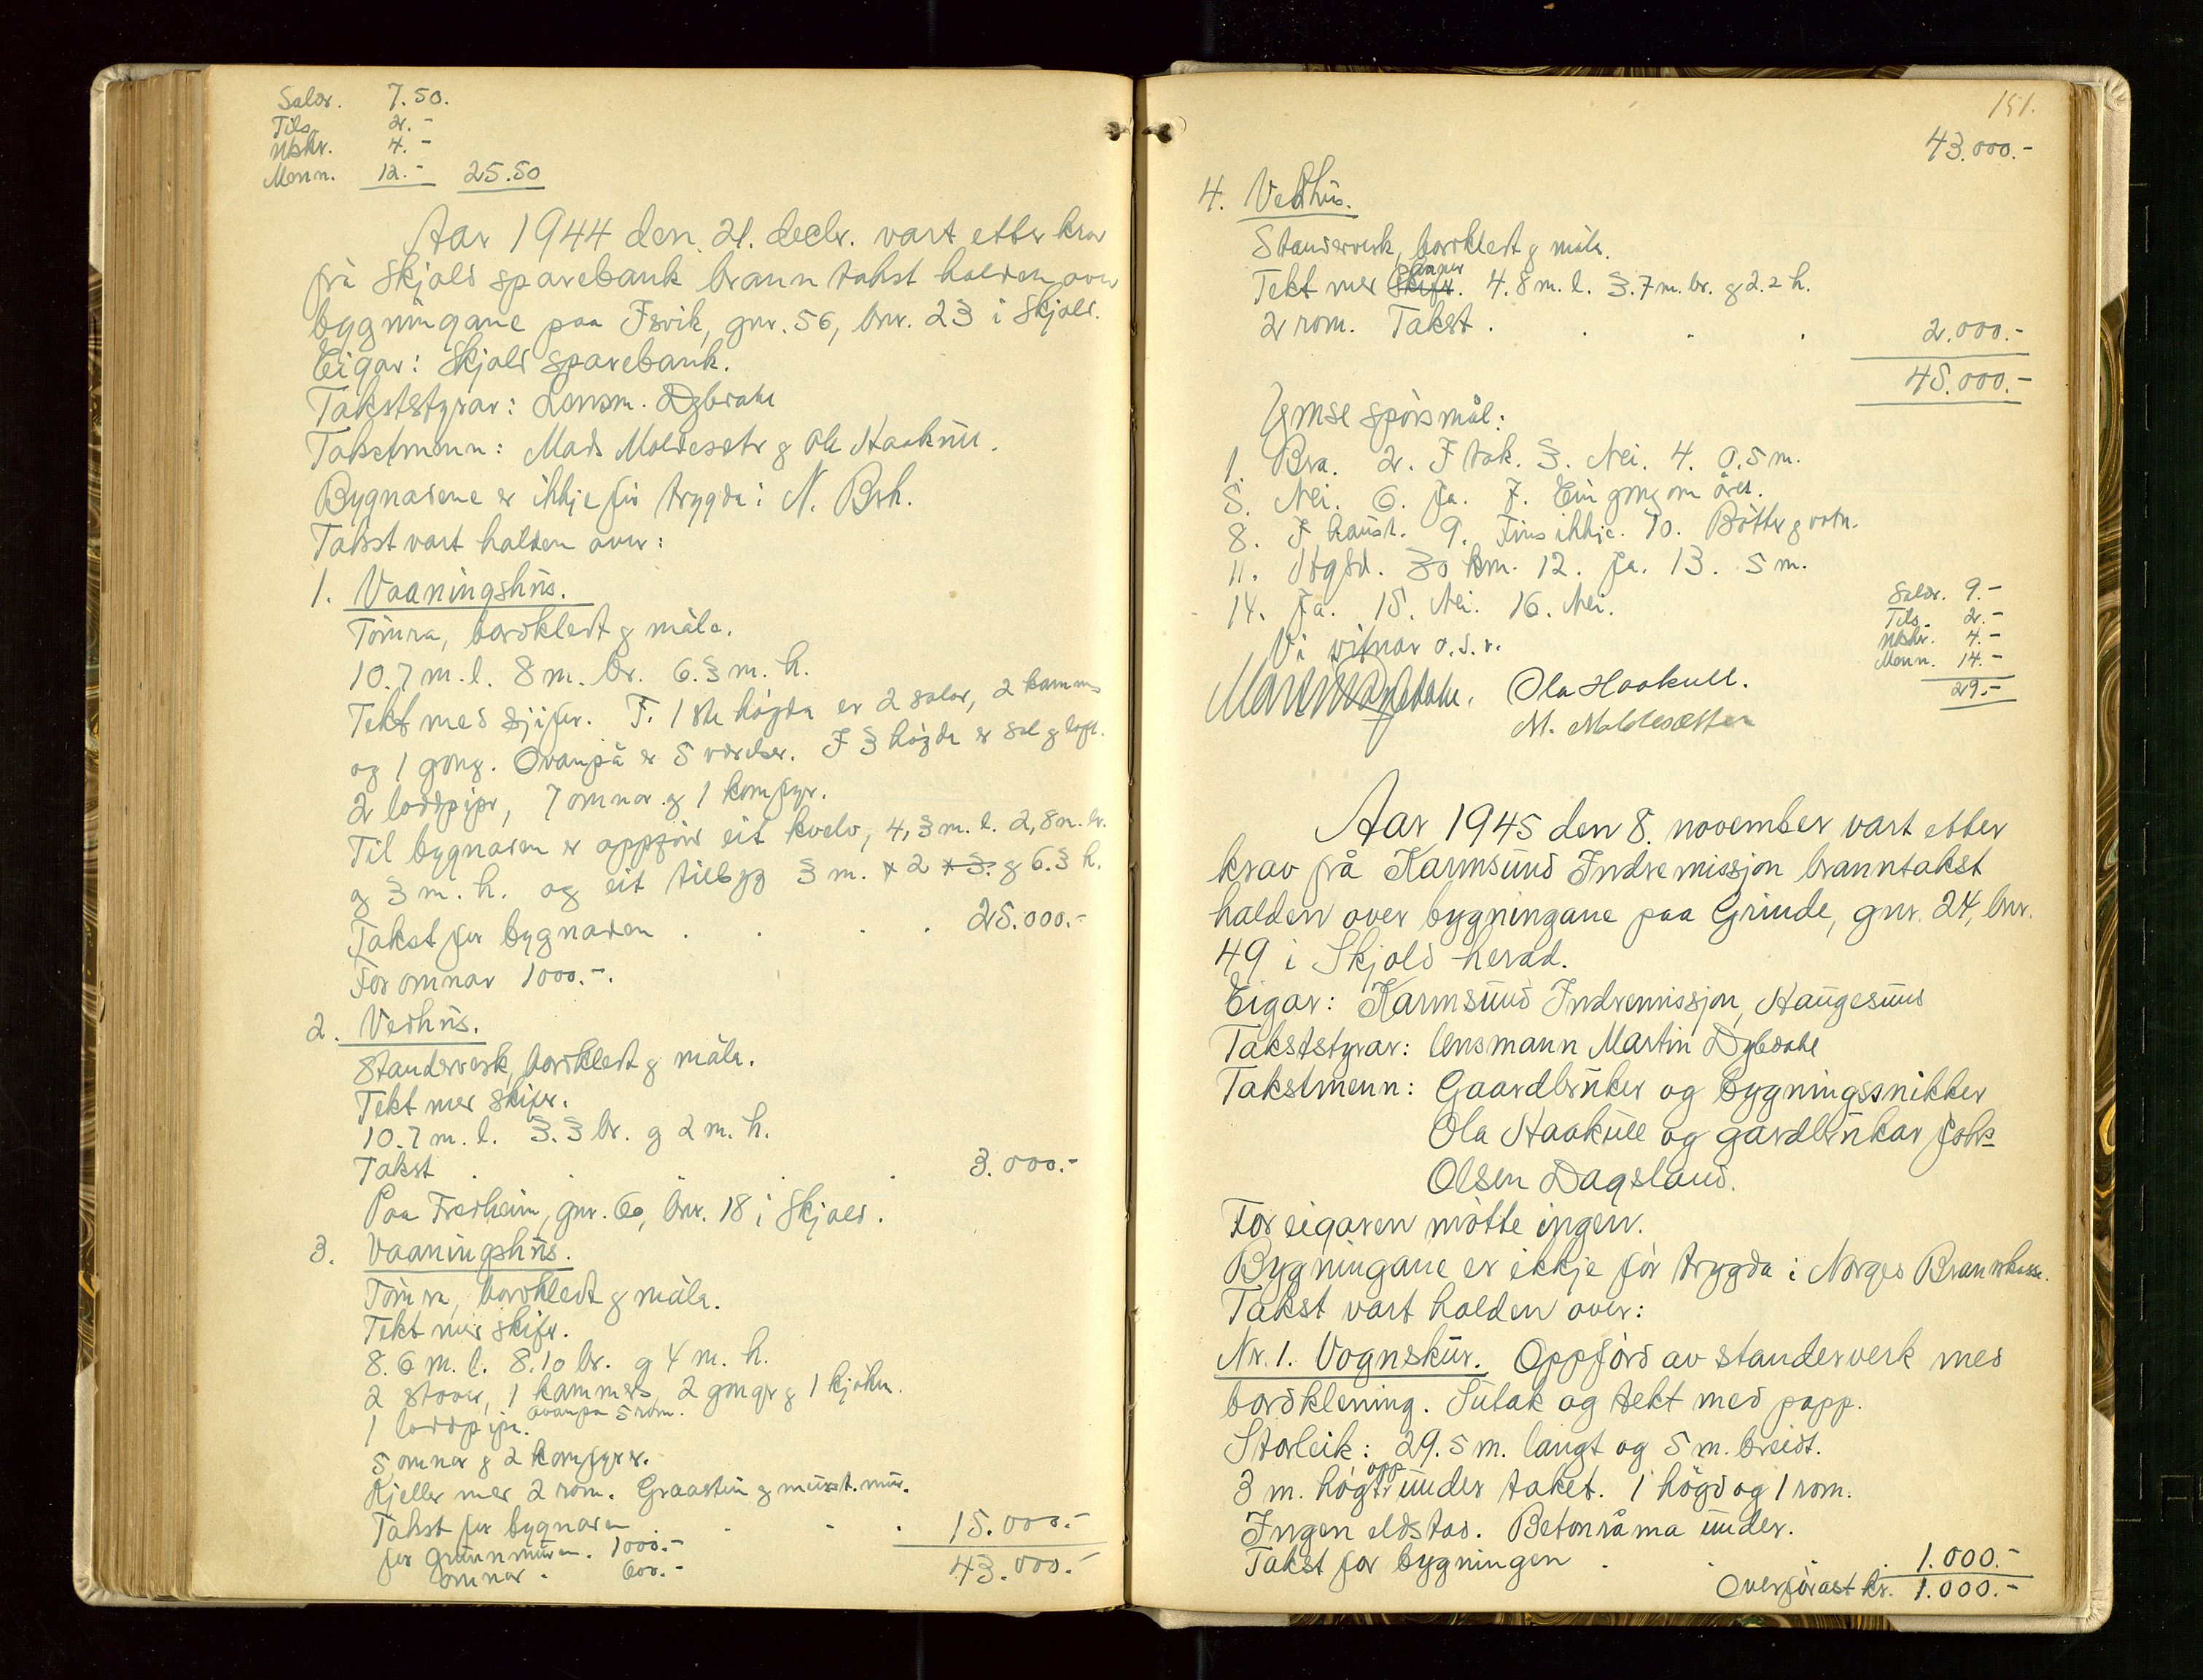 Salær. 7.50.
Tils. 2.-
Utskr. 4.-
Menn. 12.- 25.50
Aar 1944 den 21. decbr. vart etter krav
frå Skjold sparebank branntakst halden over
bygningane paa Isvik, gnr. 56, bnr. 23 i Skjold.
Eigar: Skjold sparebank.
Takststyrar: Lensm. Dybdahl
Takstmenn: Mads Moldesetr g Ola Haakull.
Bygnadene er ikkje før trygda i N. Brk.
Takst vart halden over:
1. Vaaningshus.
Tømra, bordkledt g måla.
10.7 m. l. 8 m. br. 6.3 m. h.
Tekt med sjifer. I 1ste høgda er 2 salar, 2 kammers
og 1 gong. Ovanpå er 5 værelser. I 3 høgda er sal g loft.
2 loddpipr, 7 omnar g 1 komfyr.
Til bygnaden er oppførd eit kvelv, 4,3 m. l. 2,8 m. br.
g 3 m. h. og eit tilbygg 3 m. x 2 x 3. g 6.3 h.
Takst for bygnaden . . . . 25.000.-
For omnar 1000.-.
2. Vedhus.
Standerverk, bordkledt g måla.
Tekt med skifr.
10.7 m. l. 3.3 br. g 2 m. h.
Takst . . . . . 3.000.-
Paa Fredheim, gnr. 60, bnr. 18 i Skjold.
3. Vaaningshus.
Tømra, bordkledt g måla.
Tekt med skifr.
8.6 m. l. 8.10 br. g 4 m. h.
2 stover, 1 kammers, 2 gonger g 1 kjøkn.
1 loddpipe. ovanpa 5 rom.
5 omnar g 2 komfyrer.
Kjeller med 2 rom. Graastein g murst. mur.
Takst for bygnaden . . . . 15.000.-
for grunnmuren. 1000.-
omnar . 600.- 43.000.-
151.
43.000.-
4. Vedhus.
Standerverk, bordkledt g måla.
panner
Tekt med Skifr. 4.8 m. l. 3.7 m. br. g 2.2 h.
2 rom. Takst . . . . 2.000.-
45.000.-
Ymse spørsmål:
1. Bra. 2. I tak. 3. Nei. 4. 0.5 m.
5. Nei. 6. Ja. 7. Ein gong om året.
8. I haust. 9. Fins ikkje. 10. Bøtter g vatn.
11. Hgsd. 30 km. 12. Ja. 13. 5 m.
14. Ja. 15. Nei. 16. Nei.
Salær. 9.-
Tils. 2.-
Utskr. 4.-
Menn. 14.-
29.-
Vi vitnar o.s.v.
Martin Dybdahl. Ola Haakull.
M. Moldesætter
Aar 1945 den 8. november vart etter
krav frå Karmsund Indremissjon branntakst
halden over bygningane paa Grinde, gnr. 24, bnr.
49 i Skjold herad.
Eigar: Karmsund Indremissjon, Haugesund
Takststyrar: lensmann Martin Dybdahl
Takstmenn: Gaardbruker og bygningssnikker
Ola Haakull og gardbrukar Johs
Olsen Dagsland.
For eigaren møtte ingen.
Bygningane er ikkje før trygda i Norges Brannkasse.
Takst vart halden over:
Nr. 1. Vognskur. Oppførd av standerverk med
bordklening. Sutak og tekt med papp.
Storleik: 29.5 m. langt og 5 m. breidt.
opp
3 m. høgt under taket. 1 høgd og 1 rom.
Ingen eldstad. Betonråma under.
Takst for bygningen . . . 1.000.-
Overførast kr. 1.000.-